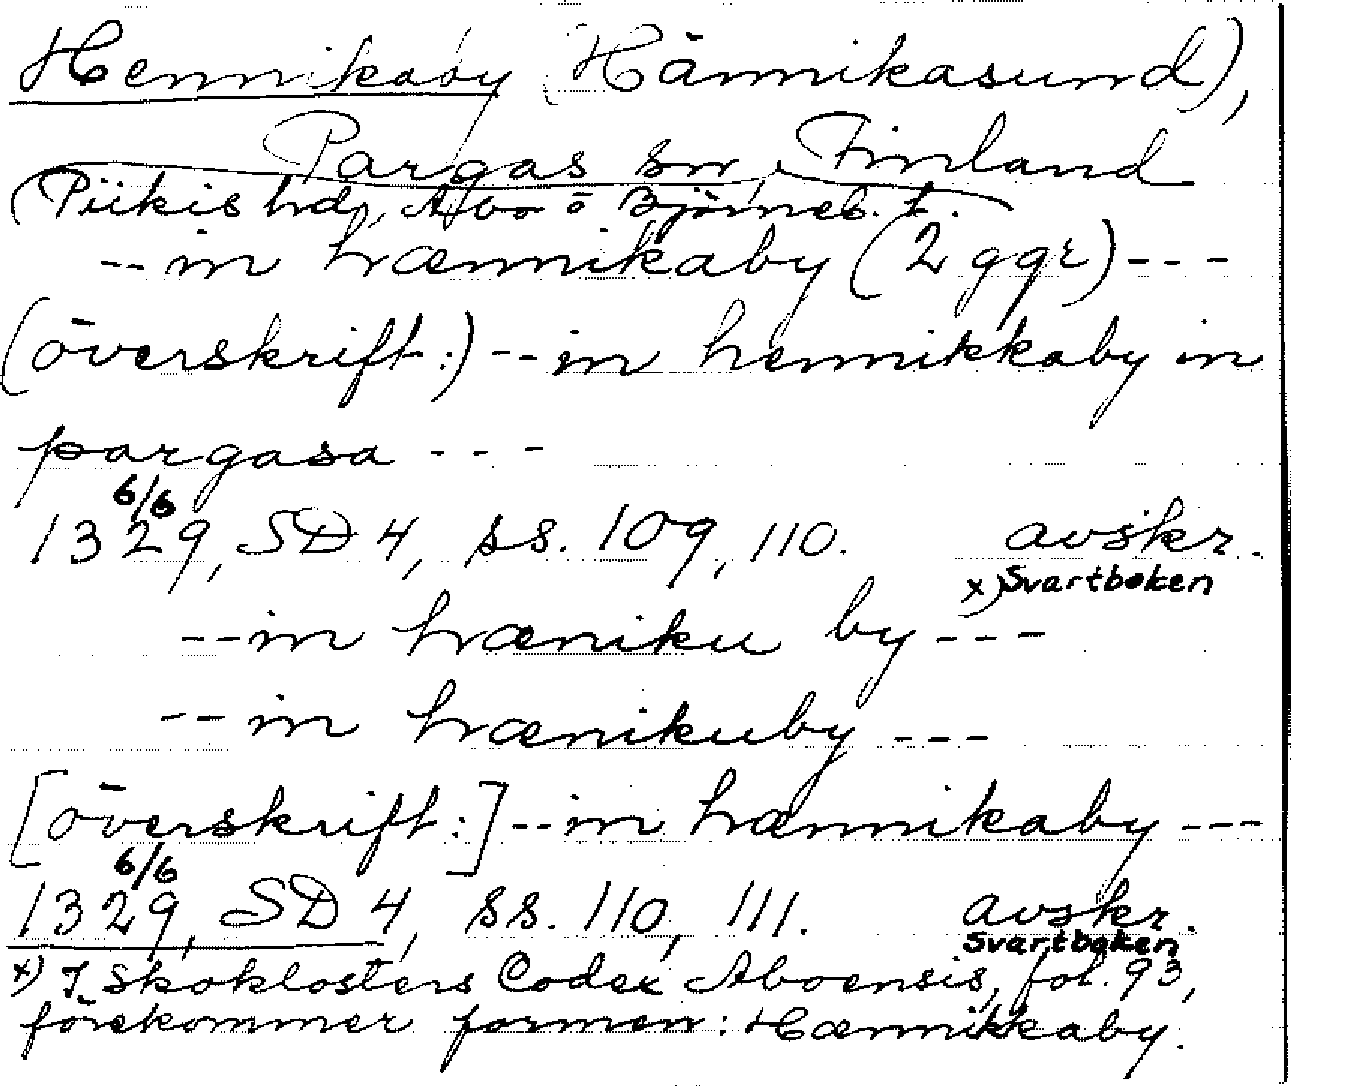 Hennikaby (Hännikasund),
Pargas sn, Finland
(Piikis hd, Åbo o Björneb. l.
--in hænnikaby (2 ggr)---
(överskrift:) --in hennikkaby in
pargasa ---
1329 6/6, SD 4, ss. 109, 110. avskr.
x) Svartboken
--in hæniku by---
--in hænikuby---
[överskrift:] --in hænnikaby---
1329 6/6, SD 4, ss. 110, 111. avskr.
Svartboken
x) I Skoklosters Codex Aboensis, fol. 93,
förekommer formen: Hænnikkaby.